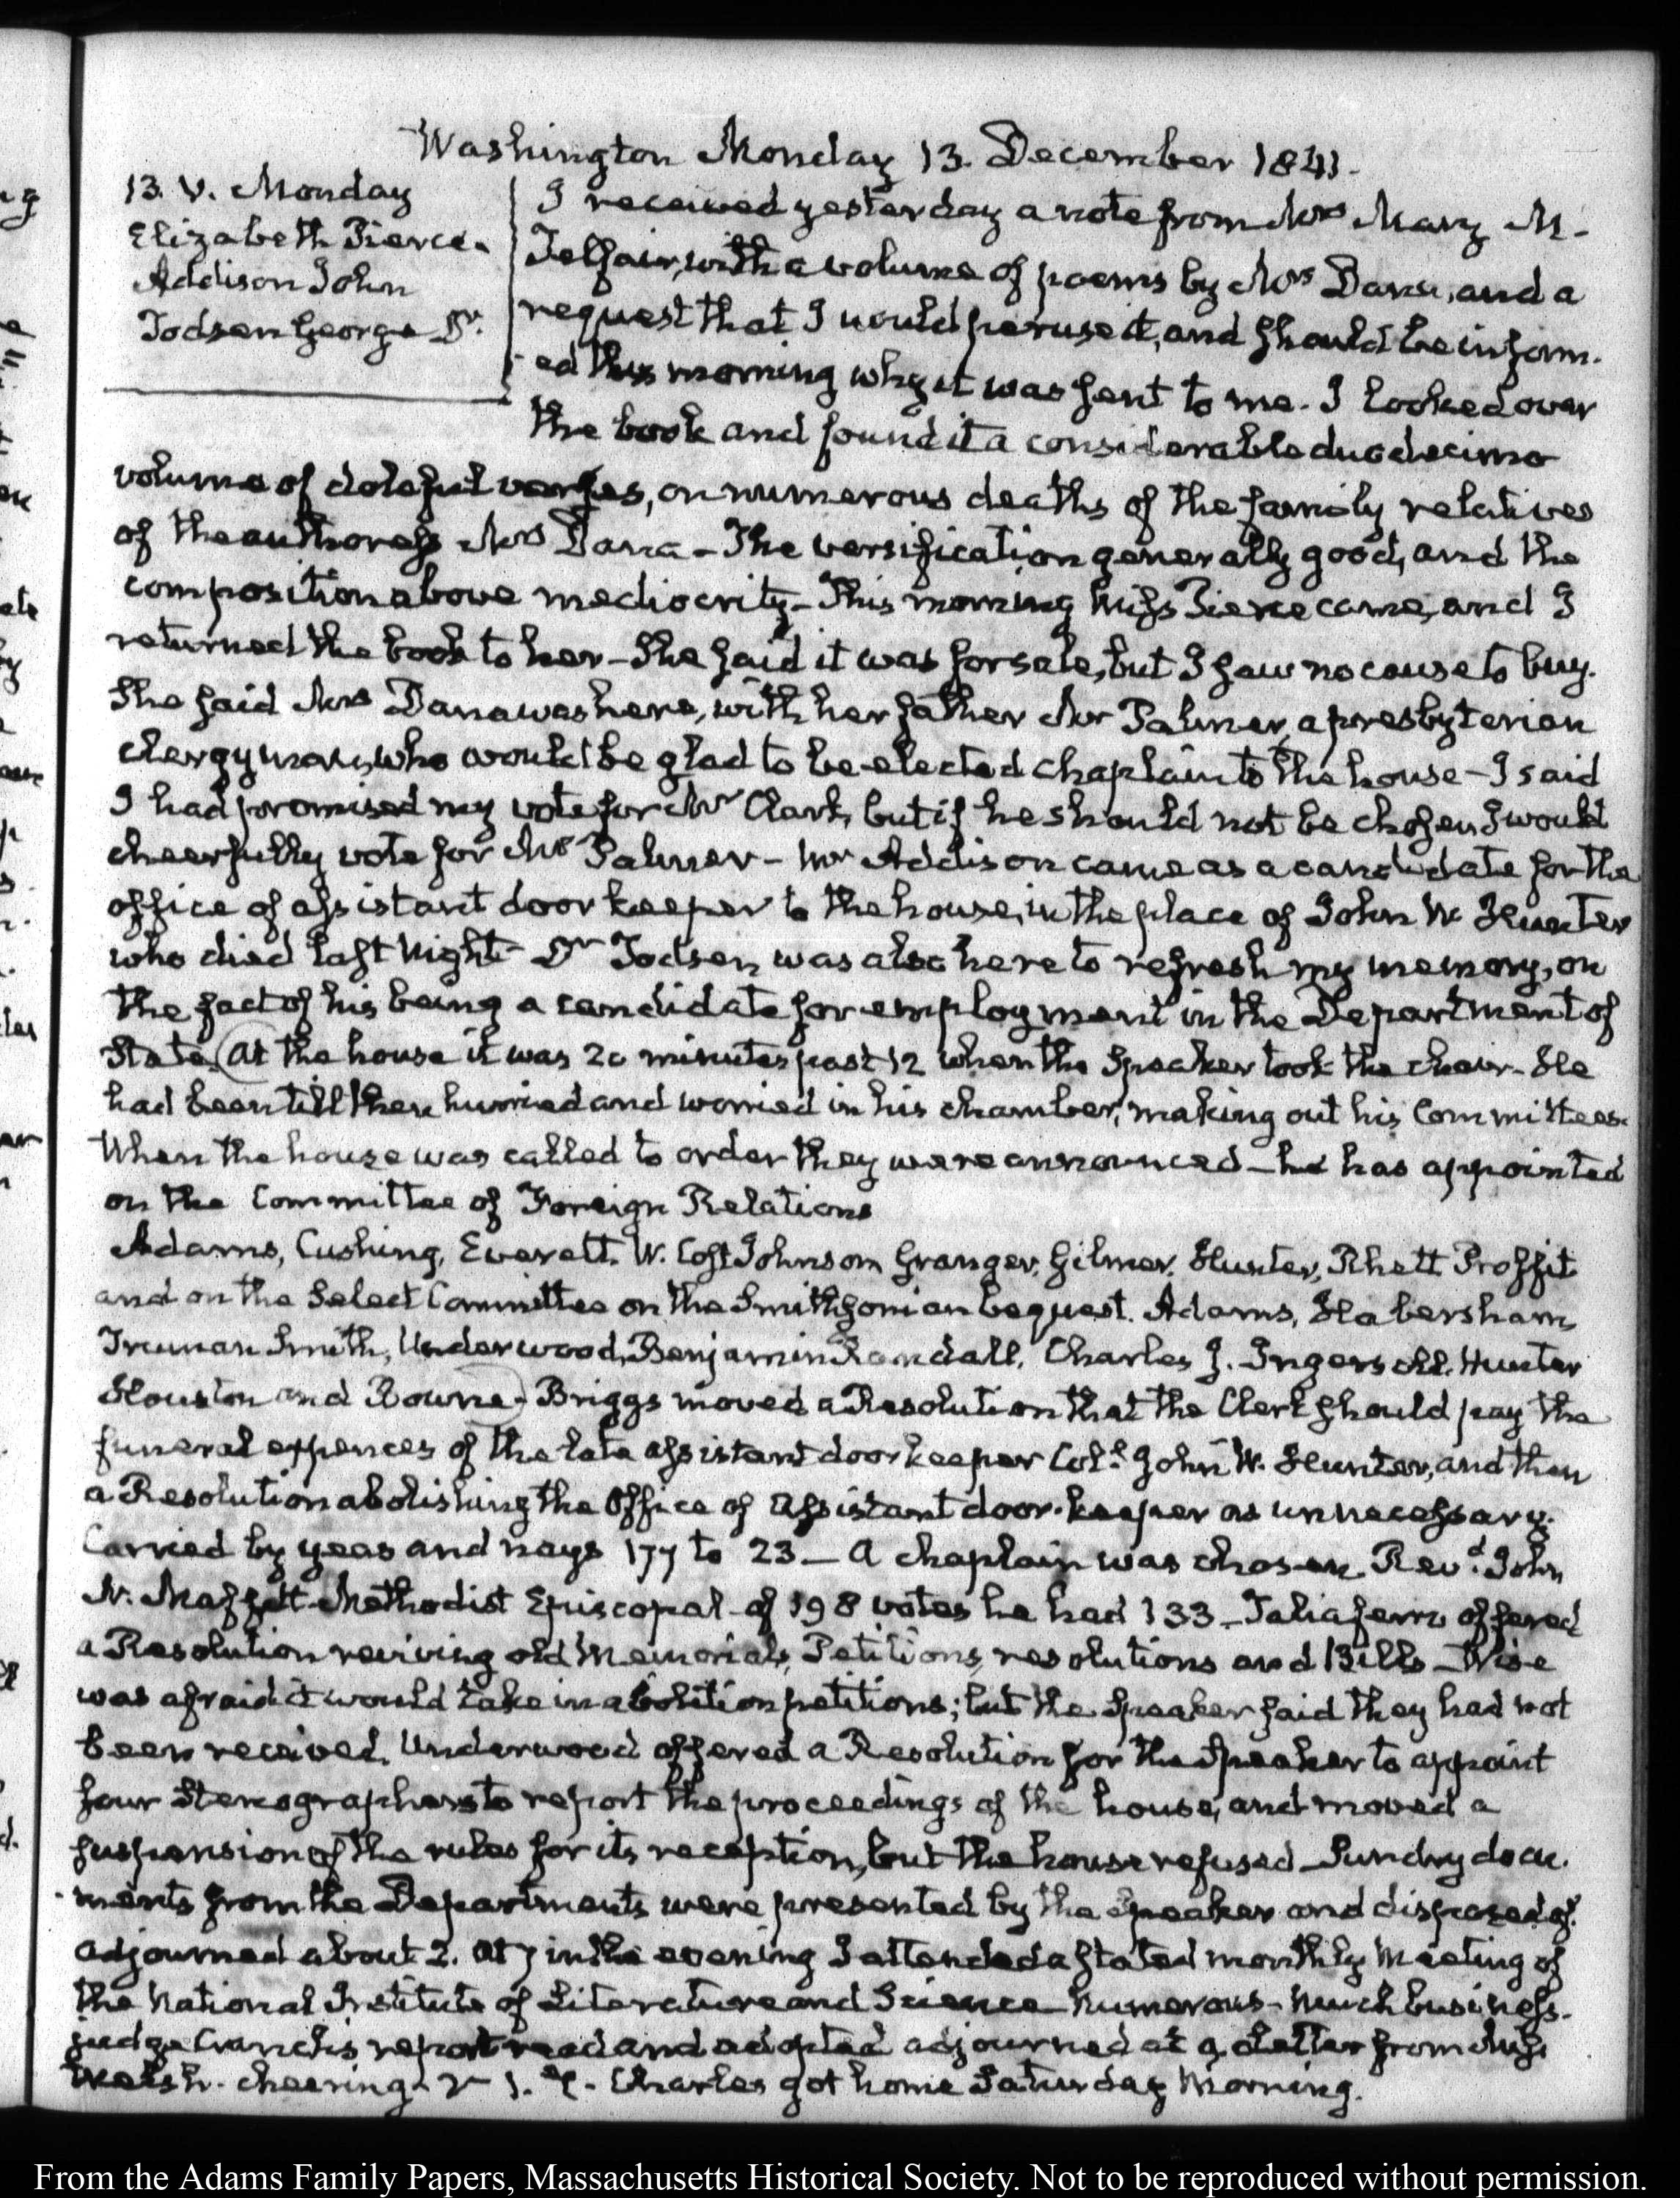 Washington Monday 13. December 1841.
13. V. Monday
Elizabeth Pierce.
Addison John
Todsen George Dr.
I received yesterday a note from Mrs Mary M.
Telfair, with a volume of poems by Mrs Dana, and a
request that I would peruse it, and should be inform-
ed this morning why it was sent to me. I looked over
the book and found it a considerable duodecimo
volume of doleful verses, on numerous deaths of the family relatives
of the authoress Mrs Dana - The versification generally good, and the
composition above mediocrity - This morning Miss Pierce came, and I
returned the book to her - She said it was for sale, but I saw no cause to buy.
She said Mrs Dana was here, with her father Mr Palmer, a presbyterian
clergyman, who would be glad to be elected chaplain to the house - I said
I had promised my vote for Mr Clark, but if he should not be chosen I would
cheerfully vote for Mr Palmer - Mr Addison came as a candidate for the
office of assistant door keeper to the house, in the place of John W. Hunter
who died last Night - Dr Todsen was also here to refresh my memory, on
the fact of his being a candidate for employment in the Department of
State. At the house it was 20 minutes past 12 when the Speaker took the chair - He
had been till then hurried and worried in his chamber, making out his Committees.
When the house was called to order they were announced - he has appointed
on the Committee of Foreign Relations
Adams, Cushing, Everett. W. Cost Johnson Granger, Gilmer, Hunter, Rhett Proffit
and on the Select Committee on the Smithsonian bequest. Adams, Habersham,
Truman Smith, Underwood, Benjamin Randall, Charles J. Ingersoll. Hunter
Houston and Bowne - Briggs moved a Resolution that the Clerk should pay the
funeral expences of the late assistant doorkeeper Coll John W. Hunter, and then
a Resolution abolishing the Office of Assistant door-keeper as unnecessary.
Carried by yeas and nays 177 to 23 - A chaplain was chosen. Revd. John
N. Maffitt Methodist Episcopal - of 198 votes he had 133 - Taliaferro offered
a Resolution reviving old Memorials, Petitions, resolutions and Bills - Wise
was afraid it would take in abolition petitions; but the Speaker said they had not
been received. Underwood offered a Resolution for the Speaker to appoint
four Stenographers to report the proceedings of the house, and moved a
suspension of the rules for its reception, but the house refused - Sundry docu-
ments from the Departments were presented by the Speaker and disposed of.
adjourned about 2. At 7 in the evening I attended a stated monthly Meeting of
the National Institute of Literature and Science - Numerous - Much business.
judge Cranch's report read and adopted adjourned at 9. Letter from Miss
Welsh. cheering - Charles got home Saturday Morning.
From the Adams Family Papers, Massachusetts Historical Society. Not to be reproduced without permission.